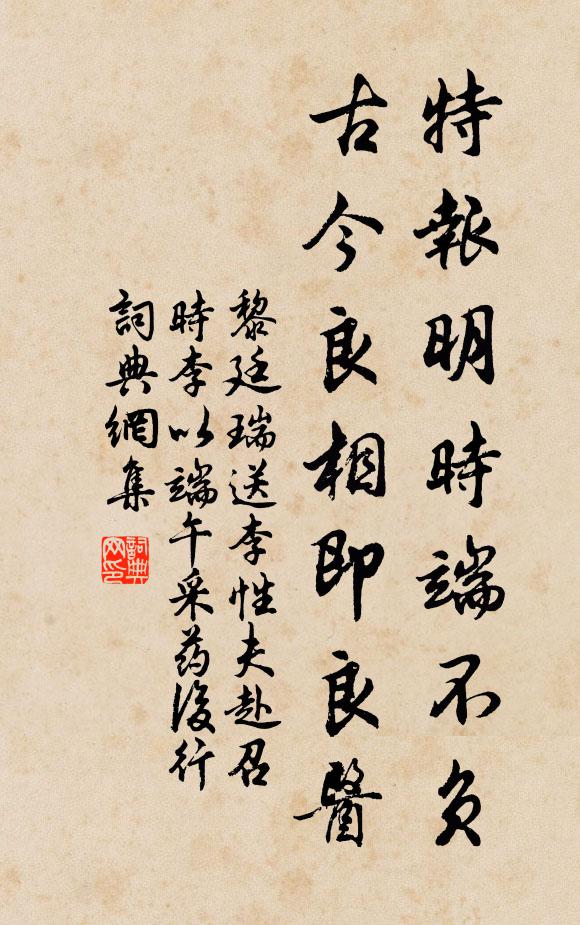 特報明時端不負
古今良相即良醫
黎廷瑞送李性夫赴召
時李以端午采药後行
詞典網集
詞典
网印